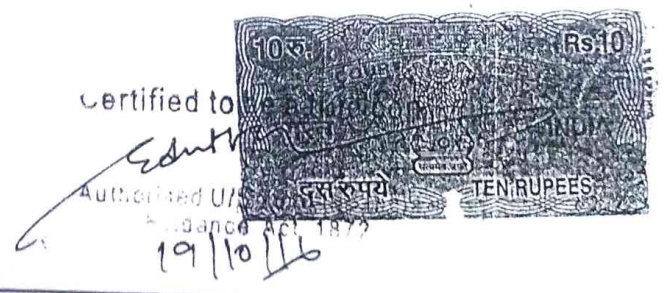 10 रु. Rs.10
Certified to be a true Copy
भारत INDIA
दस रुपये TEN RUPEES
Authorised U/S
Act 1872
19/10/16